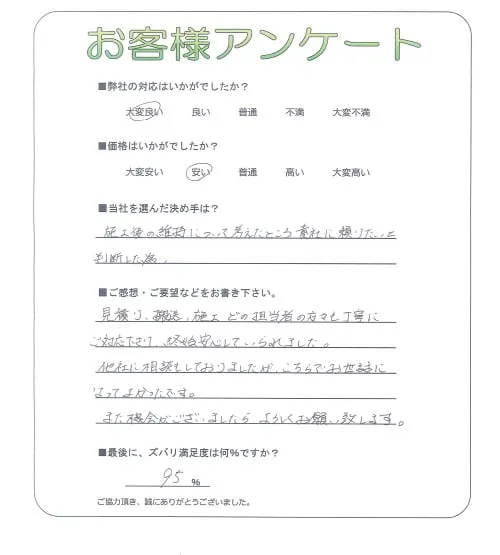 お客様アンケート
■弊社の対応はいかがでしたか？
大変良い 良い 普通 不満 大変不満
■価格はいかがでしたか？
大変安い 安い 普通 高い 大変高い
■当社を選んだ決め手は？
施工後の維持について考えたところ貴社に頼りたいと
判断した為。
■ご感想・ご要望などをお書き下さい。
見積り、搬送、施工 どの担当者の方々も丁寧に
ご対応下さり、終始安心していられました。
他社に相談もしておりましたが、こちらでお世話に
なってよかったです。
また機会がございましたら よろしくお願い致します。
■最後に、ズバリ満足度は何％ですか？
95 ％
ご協力頂き、誠にありがとうございました。